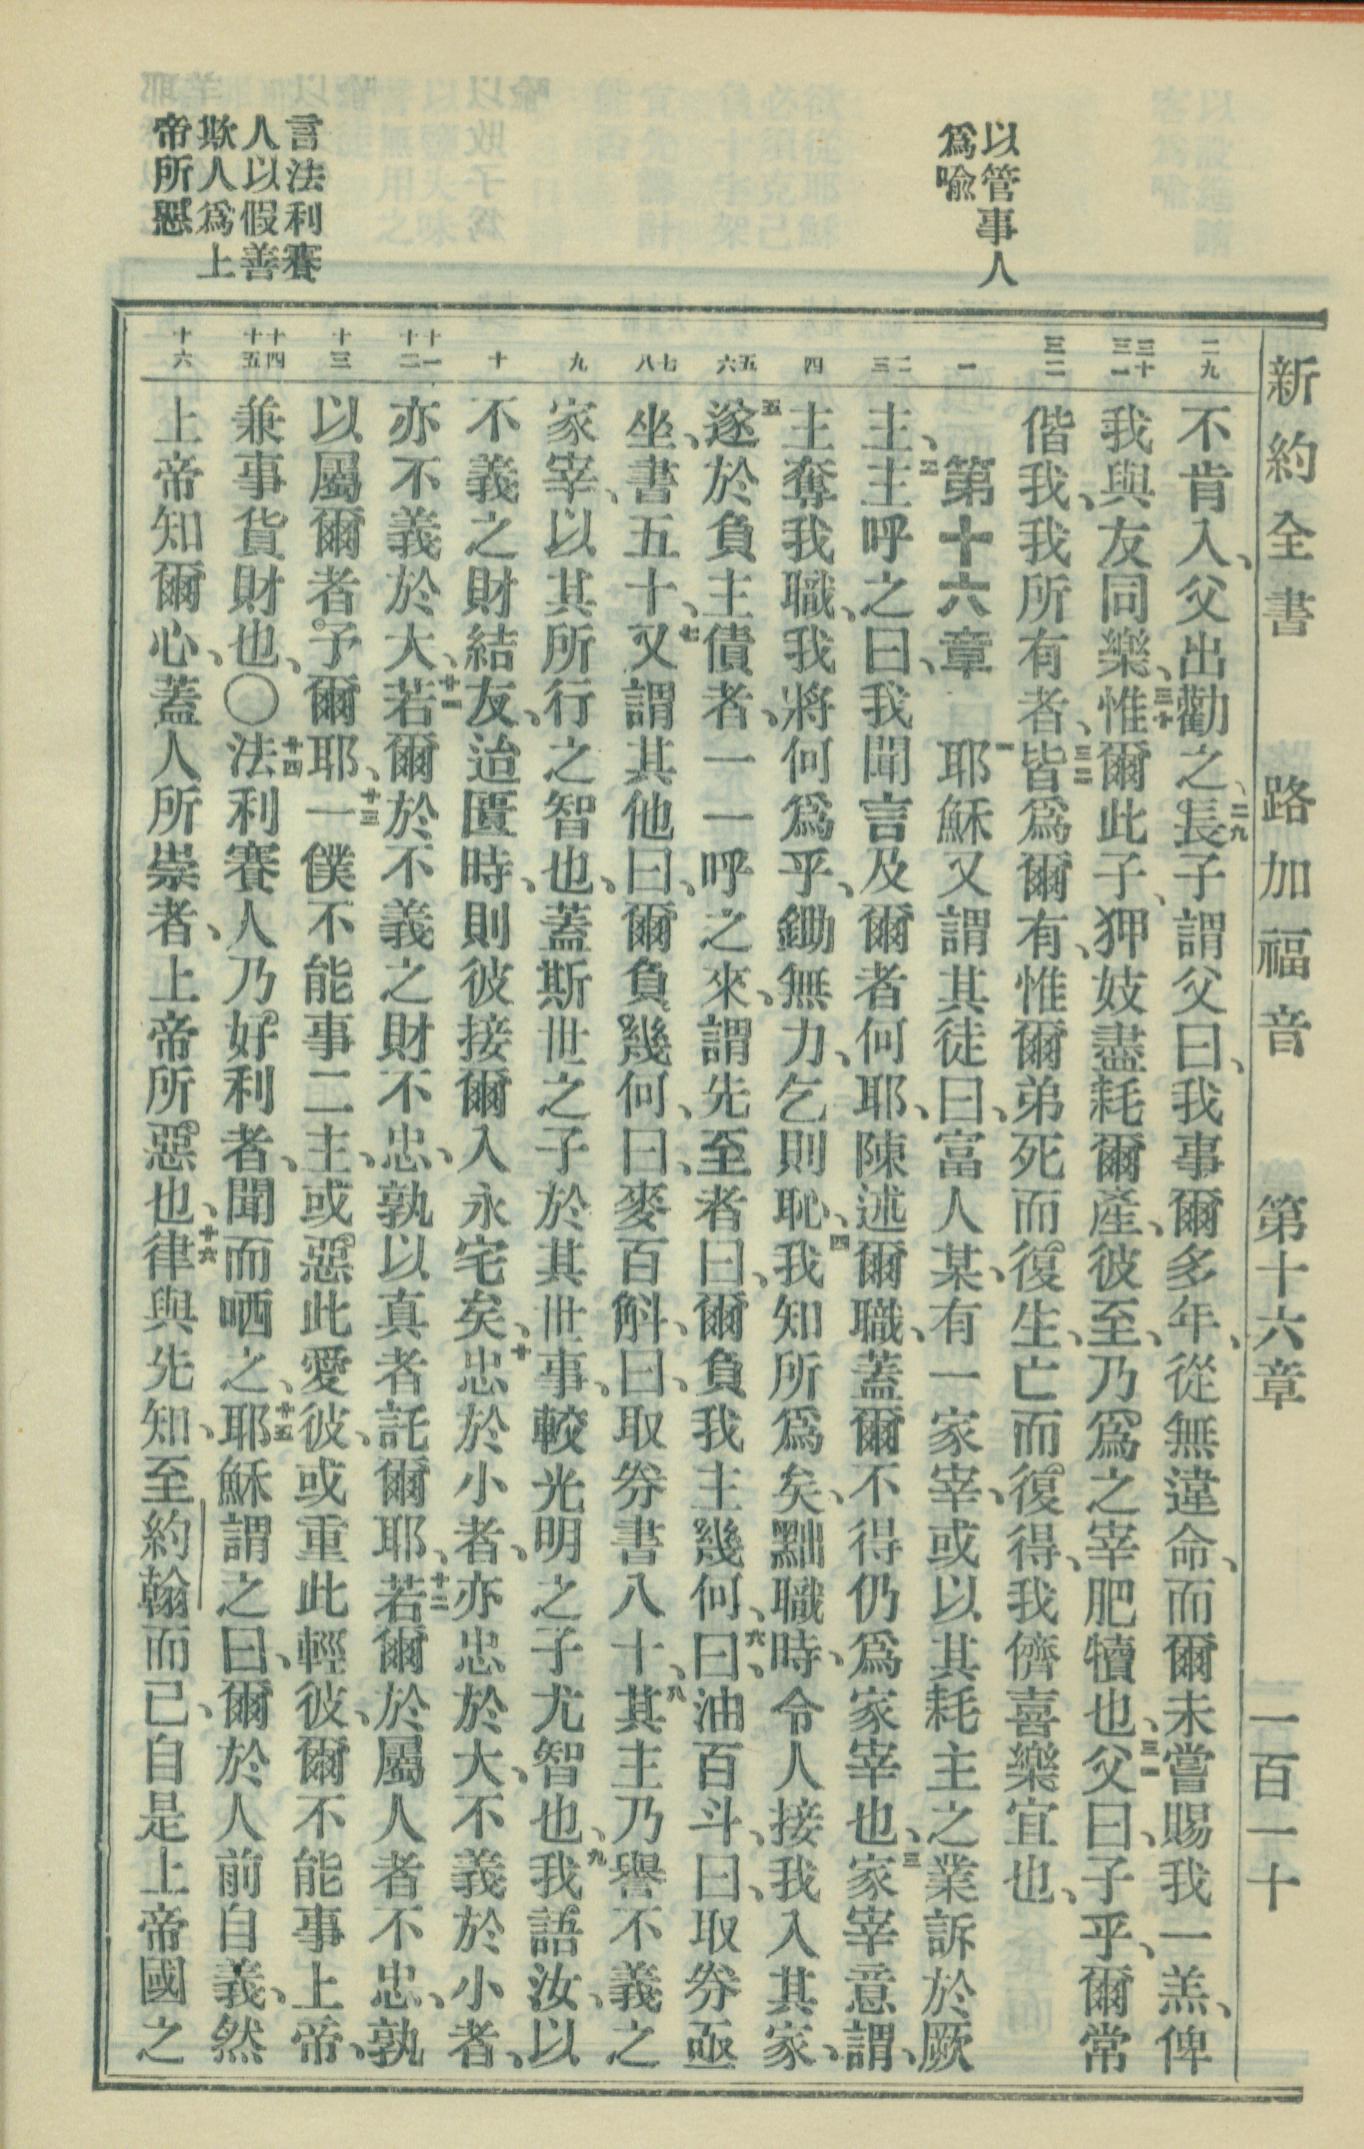 新約全書 路加福音 第十六章 一百一十
以管事人
爲喩
言法利賽
人以假善
欺人爲上
帝所惡
二九
三十
三一
三二
一
二
三
四
五
六
七
八
九
十
十一
十二
十三
十四
十五
十六
不肯入、父出勸之、二九長子謂父曰、我事爾多年、從無違命、而爾未嘗賜我一羔、俾
我與友同樂、三十惟爾此子、狎妓盡耗爾產、彼至、乃爲之宰肥犢也、三一父曰、子乎、爾常
偕我、我所有者、三二皆爲爾有、惟爾弟死而復生、亡而復得、我儕喜樂宜也、
第十六章 一耶穌又謂其徒曰、富人某、有一家宰、或以其耗主之業訴於厥
主、二主呼之曰、我聞言及爾者何耶、陳述爾職、蓋爾不得仍爲家宰也、三家宰意謂、
主奪我職、我將何爲乎、鋤無力、乞則恥、四我知所爲矣、黜職時、令人接我入其家、
五遂於負主債者、一一呼之來、謂先至者曰、爾負我主幾何、六曰、油百斗、曰、取券亟
坐、書五十、七又謂其他曰、爾負幾何、曰、麥百斛、曰、取券書八十、八其主乃譽不義之
家宰、以其所行之智也、蓋斯世之子於其世事、較光明之子尤智也、九我語汝、以
不義之財結友、迨匱時、則彼接爾入永宅矣、十忠於小者、亦忠於大、不義於小者、
亦不義於大、十一若爾於不義之財不忠、孰以真者託爾耶、十二若爾於屬人者不忠、孰
以屬爾者予爾耶、十三一僕不能事二主、或惡此愛彼、或重此輕彼、爾不能事上帝、
兼事貨財也、〇十四法利賽人乃好利者、聞而哂之、十五耶穌謂之曰、爾於人前自義、然
上帝知爾心、蓋人所崇者、上帝所惡也、十六律與先知、至約翰而已、自是上帝國之